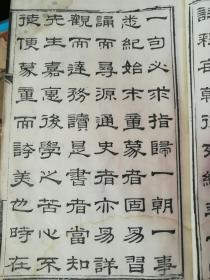 一句必求指歸一朝一事
悉紀始末童蒙者固易習
誦而尋源通史者亦易詳
觀而達務讀是書者當知
先生嘉惠後學之苦心不
徒使蒙童而誇美也時在